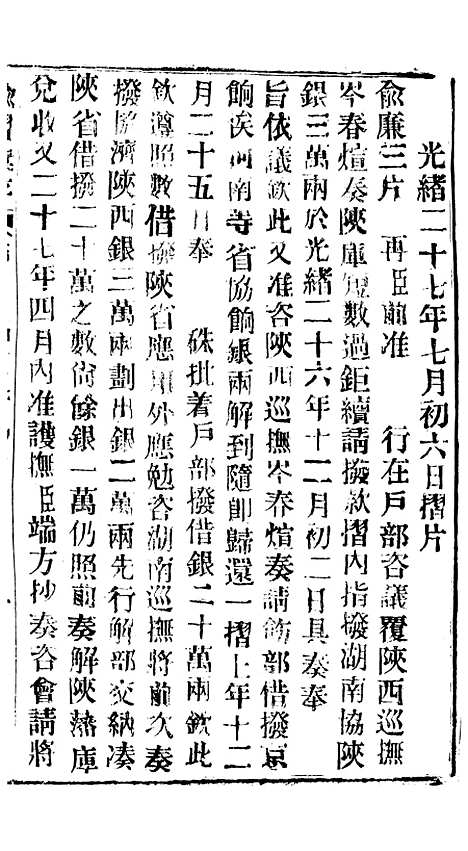 光緒二十七年七月初六日摺片
俞廉三片 再臣前准 行在戶部咨議覆陝西巡撫
岑春煊奏陝庫短數過鉅續請撥款摺內指撥湖南協陝
銀三萬兩於光緒二十六年十二月初二日具奏奉
旨依議欽此又准咨陝西巡撫岑春煊奏請飭部借撥京
餉俟河南等省協餉銀兩解到隨即歸還一摺上年十二
月二十五日奉 硃批着戶部撥借銀二十萬兩欽此
欽遵照數借撥陝省應用外應勉咨湖南巡撫將前次奏
撥協濟陝西銀三萬兩劃出銀二萬兩先行解部交納湊
陝省借撥二十萬之數尙餘銀一萬仍照前奏解陝藩庫
兌收又二十七年四月內准護撫臣端方抄奏咨會請將